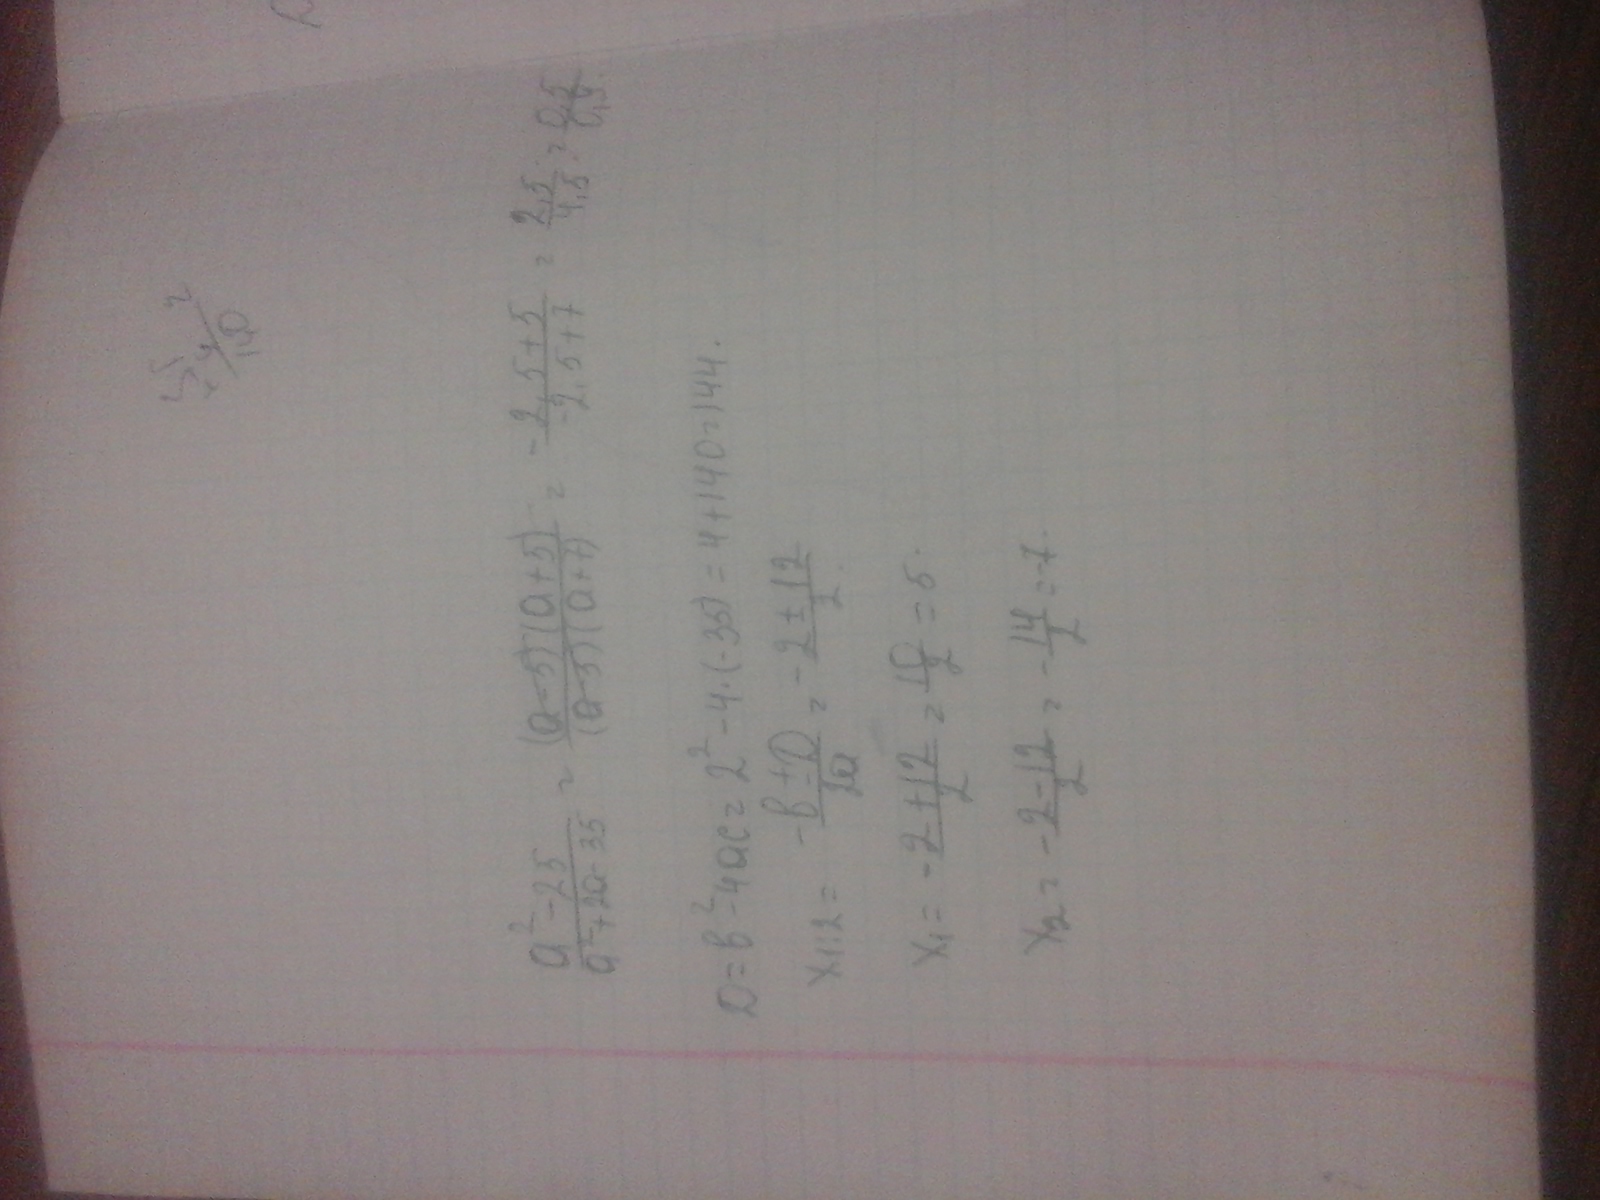 a² - 25 / a² + 2a - 35 = (a - 5)(a + 5) / (a - 5)(a + 7) = -2,5 + 5 / -2,5 + 7 = 2,5 / 4,5 =
D = b² - 4ac = 2² - 4·(-35) = 4 + 140 = 144.
x1,2 = -b ± D / 2a = -2 ± 12 / 2.
x₁ = -2 + 12 / 2 = 10 / 2 = 5.
x₂ = -2 - 12 / 2 = -14 / 2 = -7.